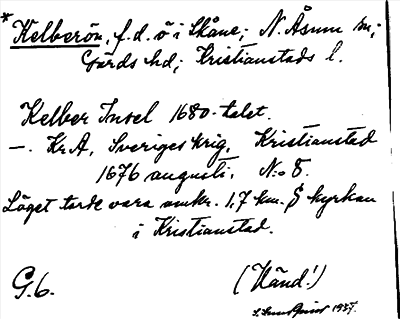 * Kelberön, f.d. ö i Skåne; N. Åsum sn;
Gärds hd; Kristianstads l.
Kelber Insel 1680-talet.
—. Kr.A, Sveriges krig, Kristianstad
1676 augusti, N:o 8.
Läget torde vara omkr. 1,7 km. S kyrkan
i Kristianstad.
G.6.
(Händ!)
1937.